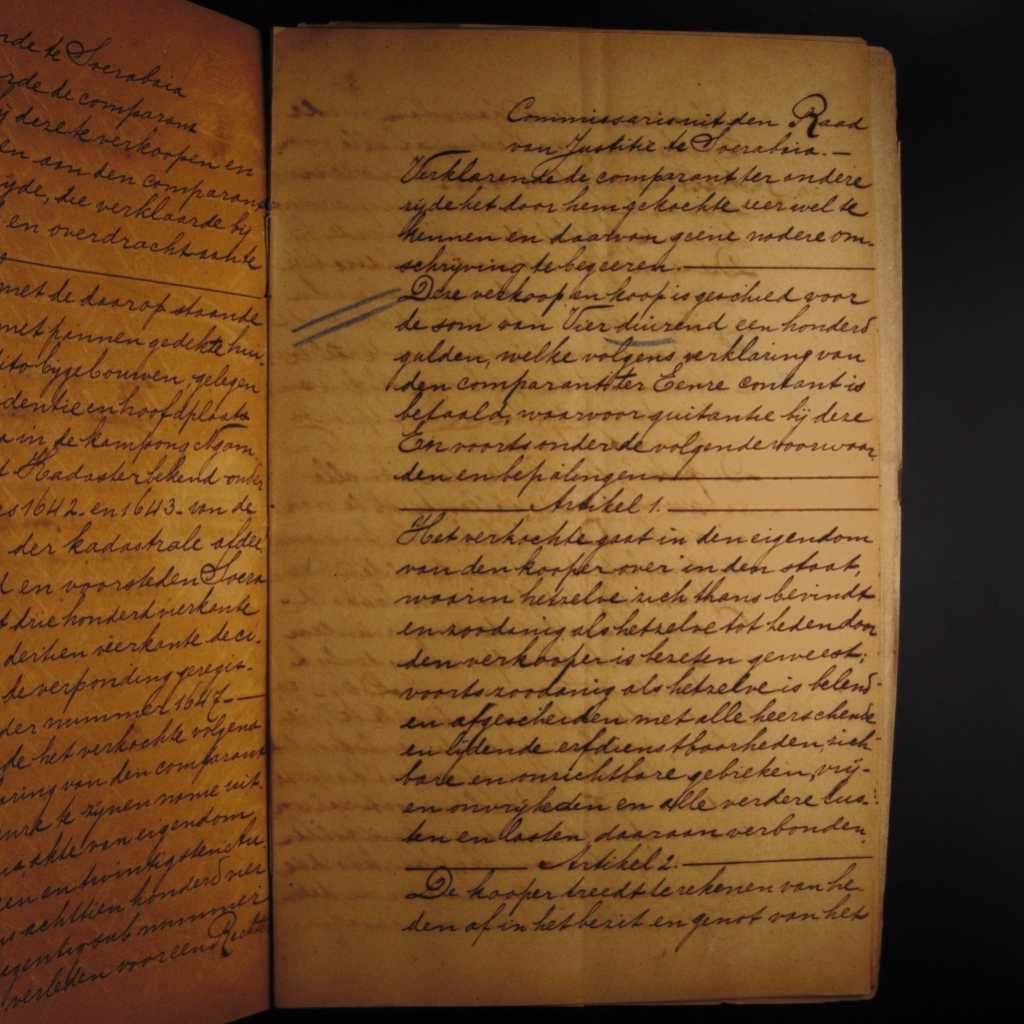 rde te Soerabaia
rde de comparant
ij deze te verkoopen en
en aan den comparant
zijde, die verklaarde bij
en overdracht aante
met de daarop staande
met pannen gedekte hui
dito bijgebouwen, gelegen
dentie en hoofdplaats
a in de kampong Ngam
t Kadaster bekend onder
s 1642- en 1643- van de
der kadastrale afdee
d en voorsteden Soera
t drie honderd vierkante
dertien vierkante deci-
de verponding geregis-
der nummer 1647-
de het verkochte volgens
aring van den comparant
te zijnen name uit-
akte van eigendom
een en twintigsten
achttien honderd
negentig sub nummer
verleden voor een Rechter
Commissaris uit den Raad
van Justitie te Soerabaia.—
Verklarende de comparant ter andere
zijde het door hem gekochte zeer wel te
kennen en daarvan geene nadere om-
schrijving te begeeren.
Deze verkoop en koop is geschied voor
de som van Vier duizend een honderd
gulden, welke volgens verklaring van
den comparant ter Eenre contant is
betaald, waarvoor quitantie bij deze
En voorts onder de volgende voorwaar
den en bepalingen
Artikel 1.
Het verkochte gaat in den eigendom
van den kooper over in den staat,
waarin hetzelve zich thans bevindt
en zoodanig als hetzelve tot heden door
den verkooper is bezeten geweest;
voorts zoodanig als hetzelve is belend
en afgescheiden met alle heerschende
en lijdende erfdienstbaarheden, zicht
bare en onzichtbare gebreken, vrij-
en onvrijheden en alle verdere lus-
ten en lasten, daaraan verbonden.
Artikel 2.
De kooper treedt te rekenen van he-
den af in het bezit en genot van het